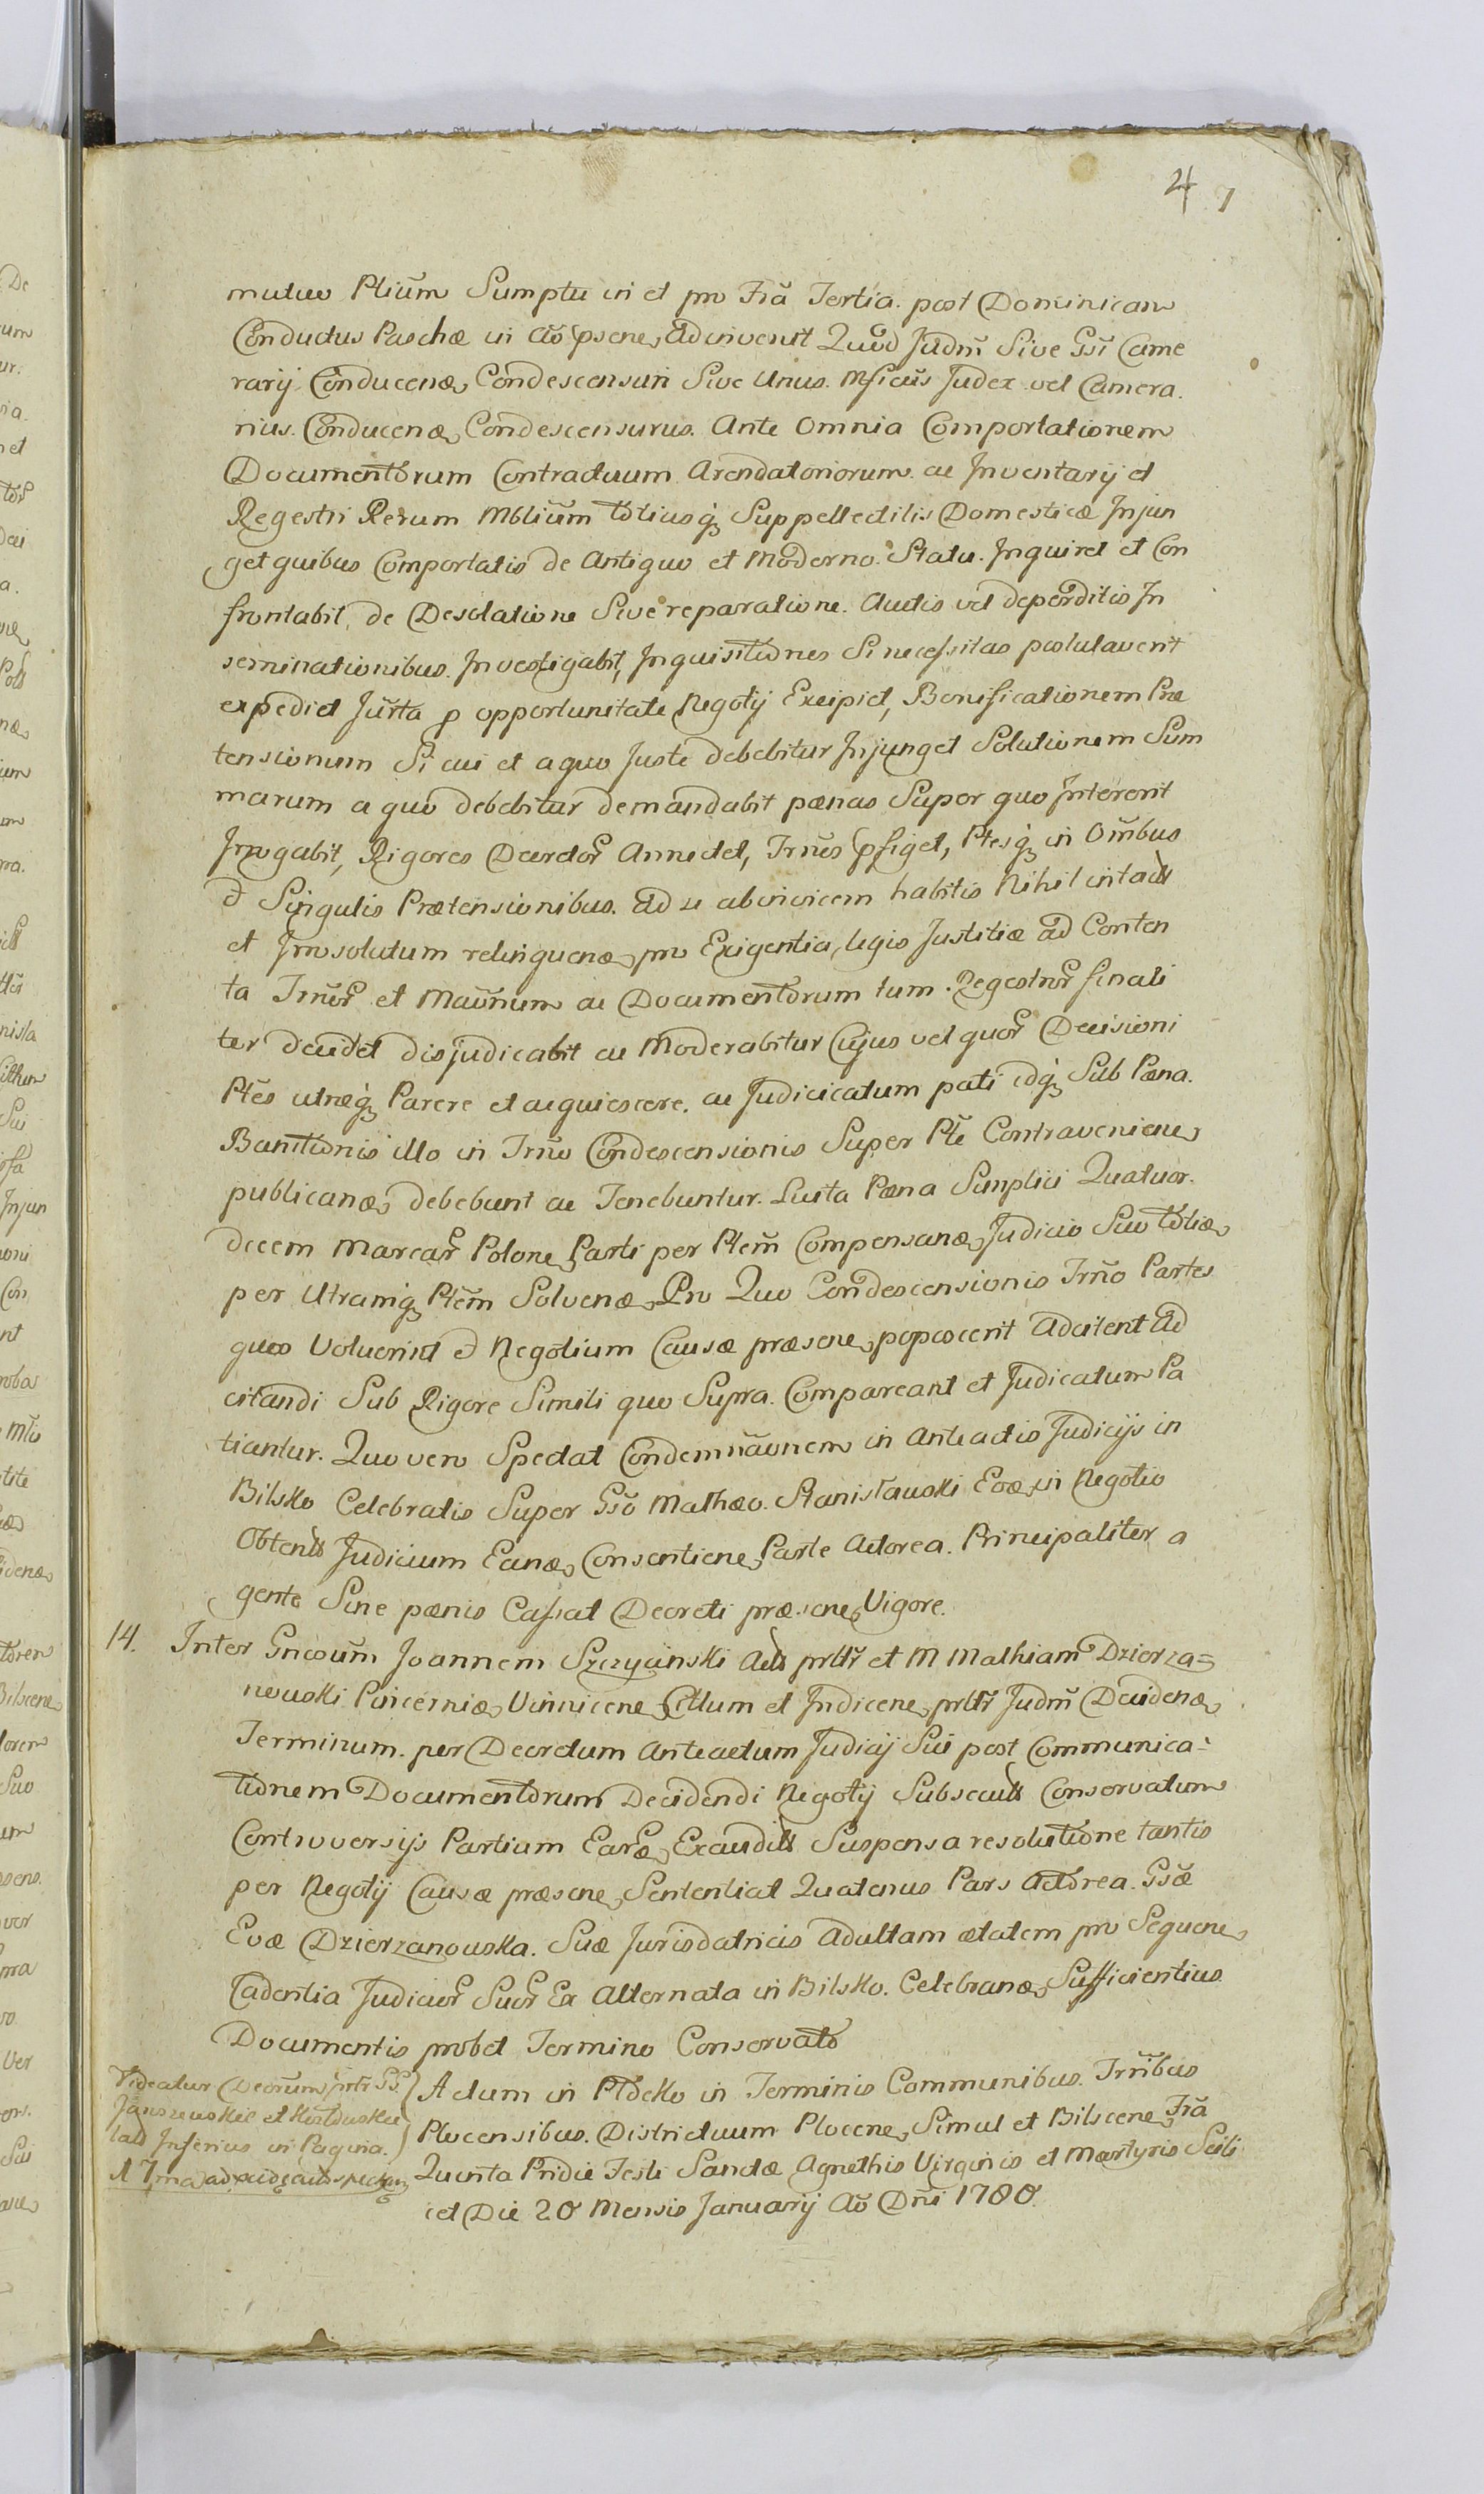 4 7
mutuo Ptium Sumptu in et pro Fria Tertia post Dominicam
Conductus Paschæ in Ao psene, adinvenit Quod Judm Sive Gsi Came
rarij Conducenæ, Condescensuri Sive Unus Mficus Judex vel Camera
rius Conducenæ, Condescensurus. Ante Omnia Comportationem
Documentorum Contractuum Arendatoriorum ac Inventarij et
Regestri Rerum Mblium totiusq; Suppellectilis Domesticæ Injun
get quibus Comportatis de Antiquo et Moderno Statu Inquiret et Con
frontabit, de Desolatione Sive reparatione Auctis vel deperditis In
seminationibus Investigabit, Inquisitiones Si necessitas postulaverit
expediet Jurta p opportunitate Negotij Excipiet, Bonificationem Præ
tensionum Si cui et a quo Juste debebitur Injunget Solutionem Sum
marum a quo debebitur demandabit pænas Super quo Intererit
Irrogabit, Rigores Decretor Annectet, Trnos pfiget, Ptesq; in Omibus
et Singulis Prætensionibus ad se abinvicem habitis Nihil intactt
et Irresolutum relinquenæ, pro Exigentia legis Justitiæ ad Conten
ta Irnor et Maunum ac Documentorum tum Regestror finali
ter decidet disjudicabit ac Moderabitur Cujus vel quor Decisioni
Ptes utræq; Parere et acquiescere ac Judicicatum pati idq; Sub Pæna
Banitionis illo in Trno Condescensionis Super Pte Contraveniene,
publicanæ, debebunt ac Tenebuntur. Luita Pæna Simplici Quatuor
decem Marcar Polone, Parti per Ptem Compensanæ, Judicio Suo totiæ,
per Utramq; Ptem Solvenæ, Pro Quo Condescensionis Trno Partes
quos Voluerint et Negotium Causæ præsene, poposcerit Adcitent Ad
citandi Sub Rigore Simili quo Supra. Compareant et Judicatum Pa
tiantur. Quo vero Spectat Condemnaonem in Anteactis Judicijs in
Bilsko Celebratis Super Gso Mathæo Stanisławski Eoæ, in Negotio
Obtentt Judicium Eanæ, Consentiene, Parte Actorea Principaliter a
gente Sine pænis Cassat Decreti præsene, Vigore.
14. Inter Gnosum Joannem Szczyciński Actt prltr et M Mathiam Dzierza=
nowski Pincerniæ, Vinnicene, Cittum et Indicene, prltr Judm Decidenæ,
Terminum per Decretum Anteactum Judicij Sui post Communica-
tionem Documentorum Decidendi Negotij Subsecutt Conservatum
Controversijs Partium Earæ, Exauditt Suspensa resolutione tantis
per Negotij Causæ præsene, Sententiat Quatenus Pars Actorea Gsæ
Evæ Dzierzanowska Suæ Jurisdatricis Adultam ætatem pro Sequene,
Cadentia Judicior Suor Ex Alternata in Bilsko Celebranæ, Sufficientius
Documentis probet Termino Conservato
Videatur Decrum intr Gs
Janszewskie et
latt Inferius in Pagina
Actum in Płocko in Terminis Communibus Trnibus
Plocensibus Districtuum Plocene, Simul et Bilscene, Fria
Quinta Pridie Festi Sanctæ Agnethis Virginis et Martyris Scili
cet Die 20 Mensis Januarij Ao Dni 1780.